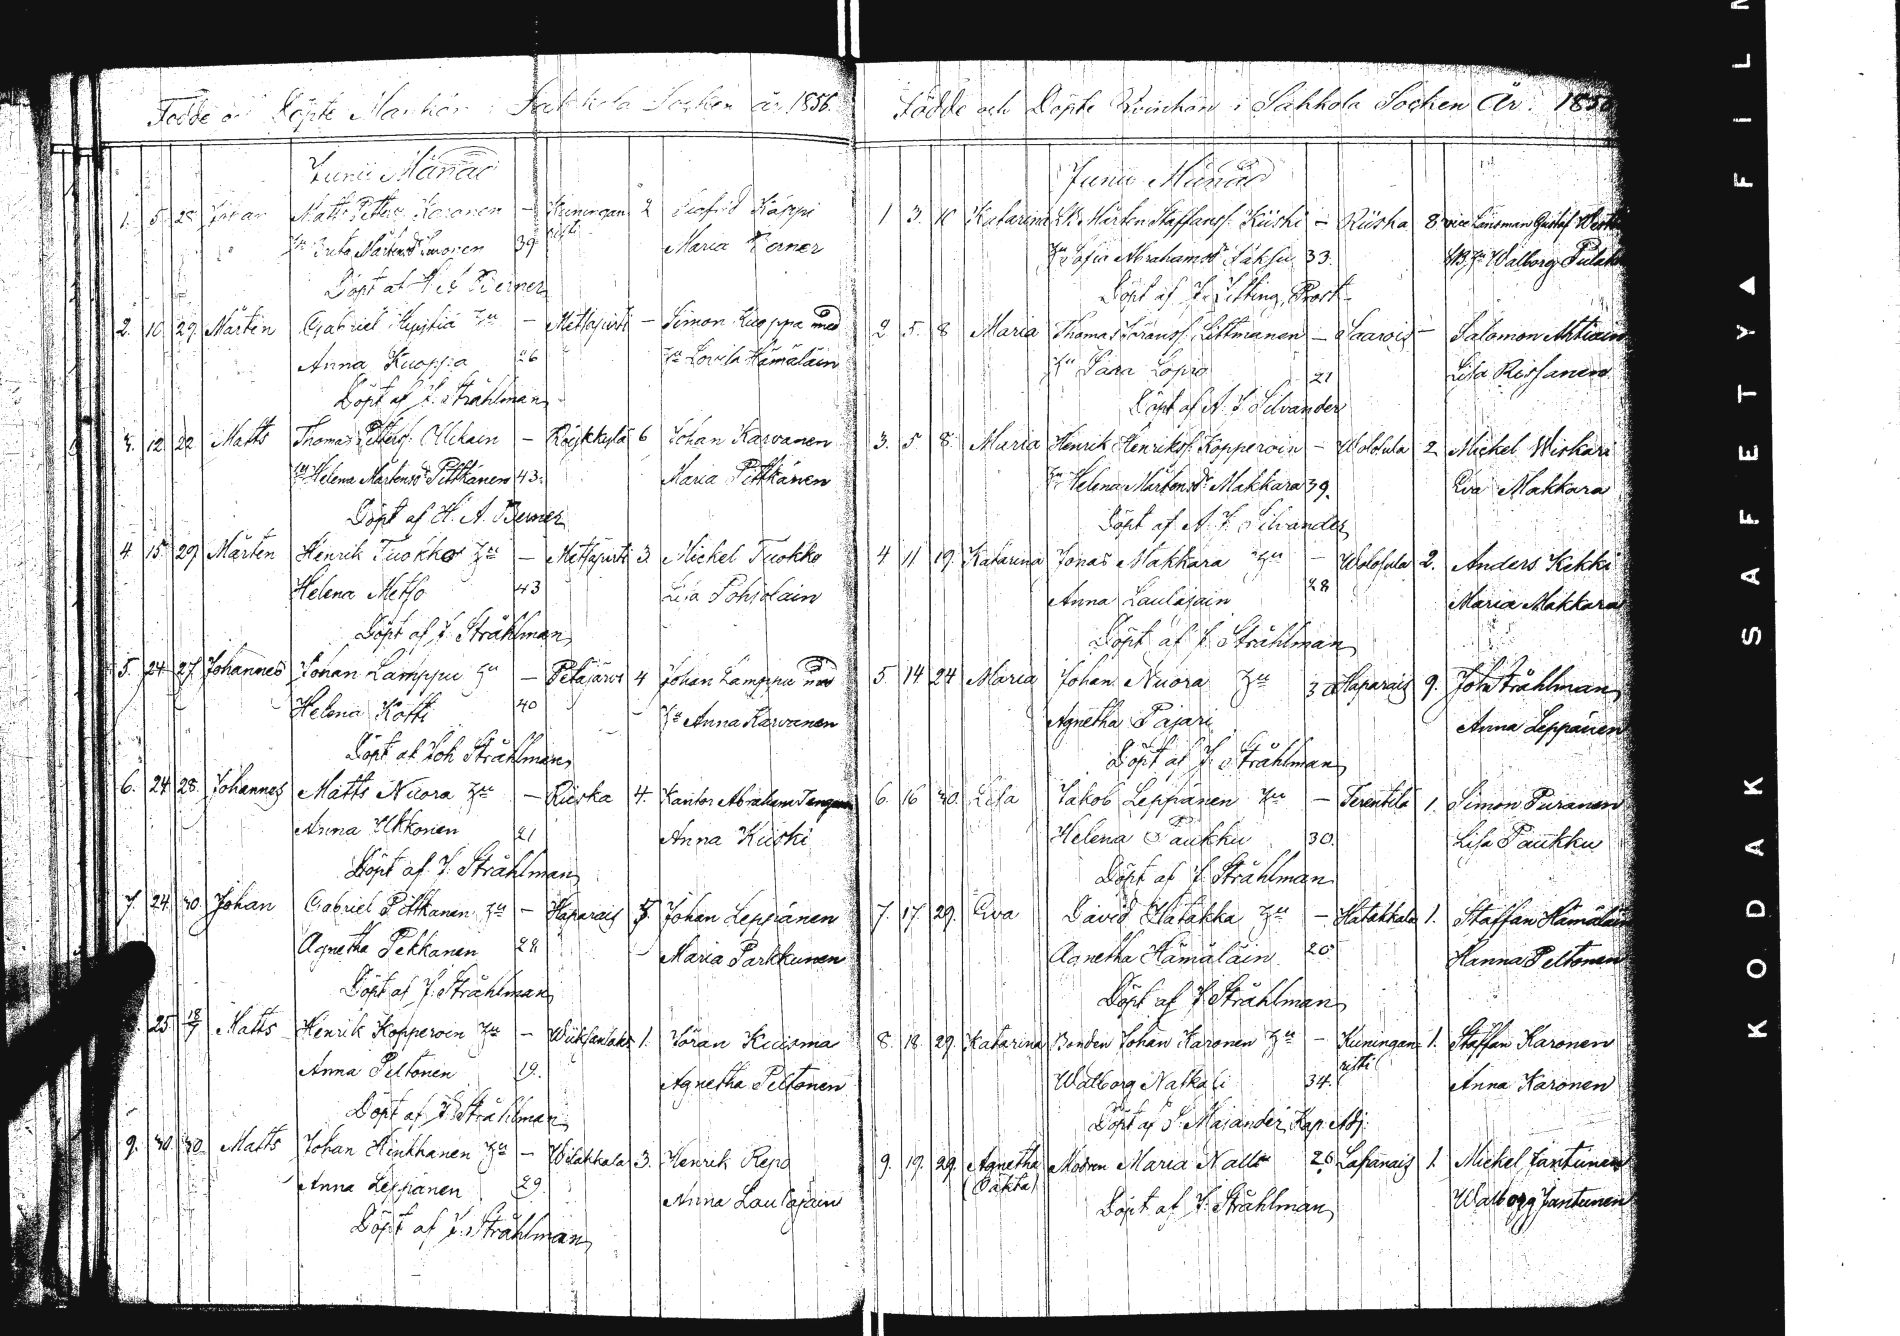 Födde och Döpte Mankön i Sakkola Socken år 1856.
Junii Månad
1. 5. 28 Johan Matts Petters. Karonen – Kuningan 2 Sigfrid Käppi
risti
Hu Brita Mårtensdr Suronen 39 Maria Berner
Döpt af H A Berner
2. 10. 29 Mårten Gabriel Hu – Metsäpirti – Simon Kuoppa med
Anna Kuoppa 26 Hu Lovisa Hämäläin
Döpt af J. Stråhlman
3. 12. 22 Matts Thomas Petterss. Ollikain – Röykkylä 6 Johan Karvanen
Hu Helena Mårtensdr Pitkänen 43. Maria Pitkänen
Döpt af H. A. Berner
4 15 29 Mårten Henrik Tuokko Hu – Metsäpirti 3. Mickel Tuokko
Helena Metso 43 Lisa Pohjolain
Döpt af J. Stråhlman
5. 24 27. Johannes Johan Lamppu Hu – Petäjärvi 4 Johan Lamppu med
Helena Kotti 40 Hu Anna Karvanen
Döpt af Joh Stråhlman
6. 24. 28. Johannes Matts Nuora Hu – Riiska 4. Kantor Abraham
Anna Ukkonen 21 Anna Kiiski
Döpt af J. Stråhlman
7. 24. 30. Johan Gabriel Pitkänen Hu – Haparais 5 Johan Leppänen
Agnetha Pekkanen 28 Maria Parkkunen
Döpt af J. Stråhlman
25 18/7 Matts Henrik Kopperoin Hu – Wiiksanlaks 1. Jöran Kuisma
Anna Peltonen 19. Agnetha Peltonen
Döpt af J. Stråhlman
9. 30. 30. Matts Johan Hinkkanen Hu – Wilakkala 3. Henrik Repo
Anna Leppänen 29. Anna Laulajain
Döpt af J. Stråhlman
Födde och Döpte Qvinkön i Sakkola Socken År. 1856
Junii Månad
1 3. 10 Katarina Mårten Staffanss. Kiiski – Riiska 8 vice Länsman Gustaf
Hu Sofia Abrahamsdr Säksu 33. Hu Walborg Pulak
Döpt af J. Zitting, Prost
2 5. 8 Maria Thomas Göranss. Littmanen – Saarois – Salomon Ahtiain
Hu Sara Lopro 21 Lisa Rissanen
Döpt af A. J. Silvander
3. 5 8. Maria Henrik Henrikss. Kopperoin – Wolosula 2 Mickel Wiskari
Hu Helena Mårtensdr Makkara 39. Eva Makkara
Döpt af A. J. Silvander
4 11 19. Katarina Jonas Makkara Hu – Wolosula 2. Anders Kekki
Anna Laulajain 28 Maria Makkara
Döpt af J. Stråhlman
5. 14 24 Maria Johan Nuora Hu 30 Haparais 9. Joh Stråhlman
Agnetha Pajari Anna Leppänen
Döpt af J. Stråhlman
6. 16 30. Lisa Jakob Leppänen Hu – Terentilä 1. Simon Puranen
Helena Paukku 30. Lisa Paukku
Döpt af J. Stråhlman
7. 17. 29. Eva David Hatakka Hu – Hatakkala 1. Staffan Hämäläin
Agnetha Hämäläin 20 Hanna Peltonen
Döpt af J. Stråhlman
8. 18. 29. Katarina Bonden Johan Karonen Hu – Kuningan 1. Staffan Karonen
risti
Walborg Naskali 34. Anna Karonen
Döpt af S. Majander, Kap. Adj.
9. 19. 29. Agnetha Modren Maria Nalli 26 Lapanais 1 Mickel Jantunen
(Oäkta) Walborg Jantunen
Döpt af J. Stråhlman
KODAK SAFETY▲FILM